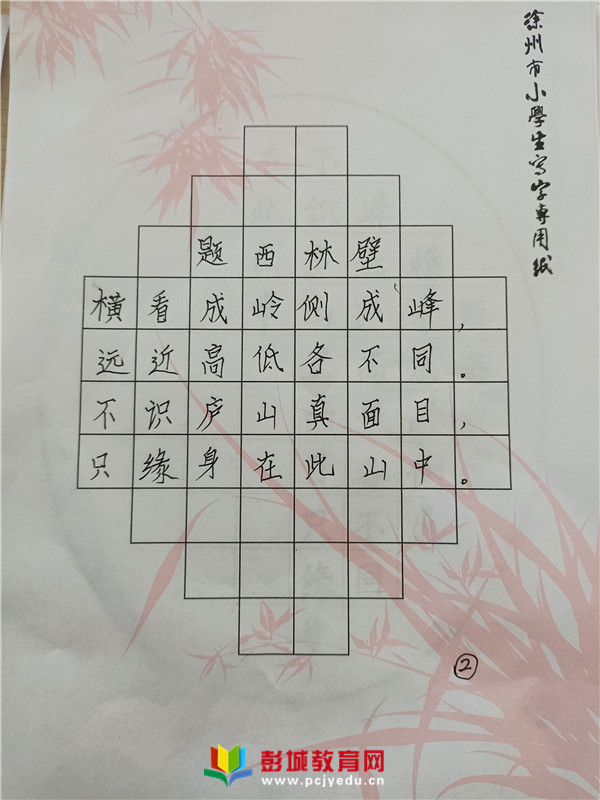 徐州市小學生寫字專用紙
题西林壁
横看成岭侧成峰，
远近高低各不同。
不识庐山真面目，
只缘身在此山中。
②
彭城教育网
www.pcjyedu.cn